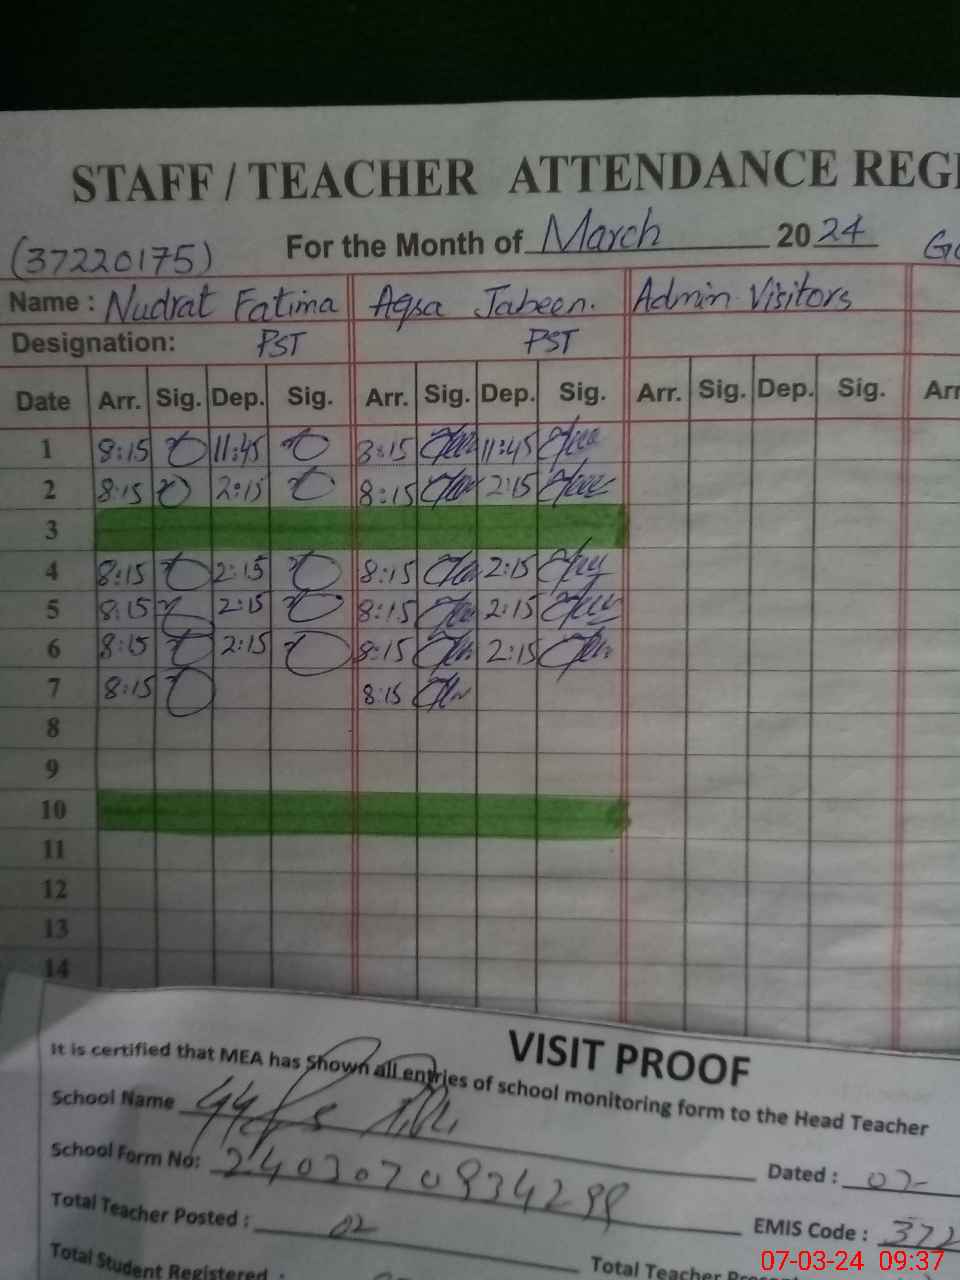 STAFF / TEACHER ATTENDANCE REG
(37220175) For the Month of March 2024
Name : Nudrat Fatima Aqsa Jabeen. Admin Visitors
Designation: PST PST
Date Arr. Sig. Dep. Sig. Arr. Sig. Dep. Sig. Arr. Sig. Dep. Sig. Arr
1 8:15 11:45 8:15 11:45
2 8:15 2:15 8:15 2:15
3
4 8:15 2:15 8:15 2:15
5 8:15 2:15 8:15 2:15
6 8:15 2:15 8:15 2:15
7 8:15 8:15
8
9
10
11
12
13
14
VISIT PROOF
It is certified that MEA has Shown all entries of school monitoring form to the Head Teacher
School Name
School Form No: Dated : 07-
Total Teacher Posted : 02 EMIS Code : 372
Total Student Registered : Total Teacher
07-03-24 09:37